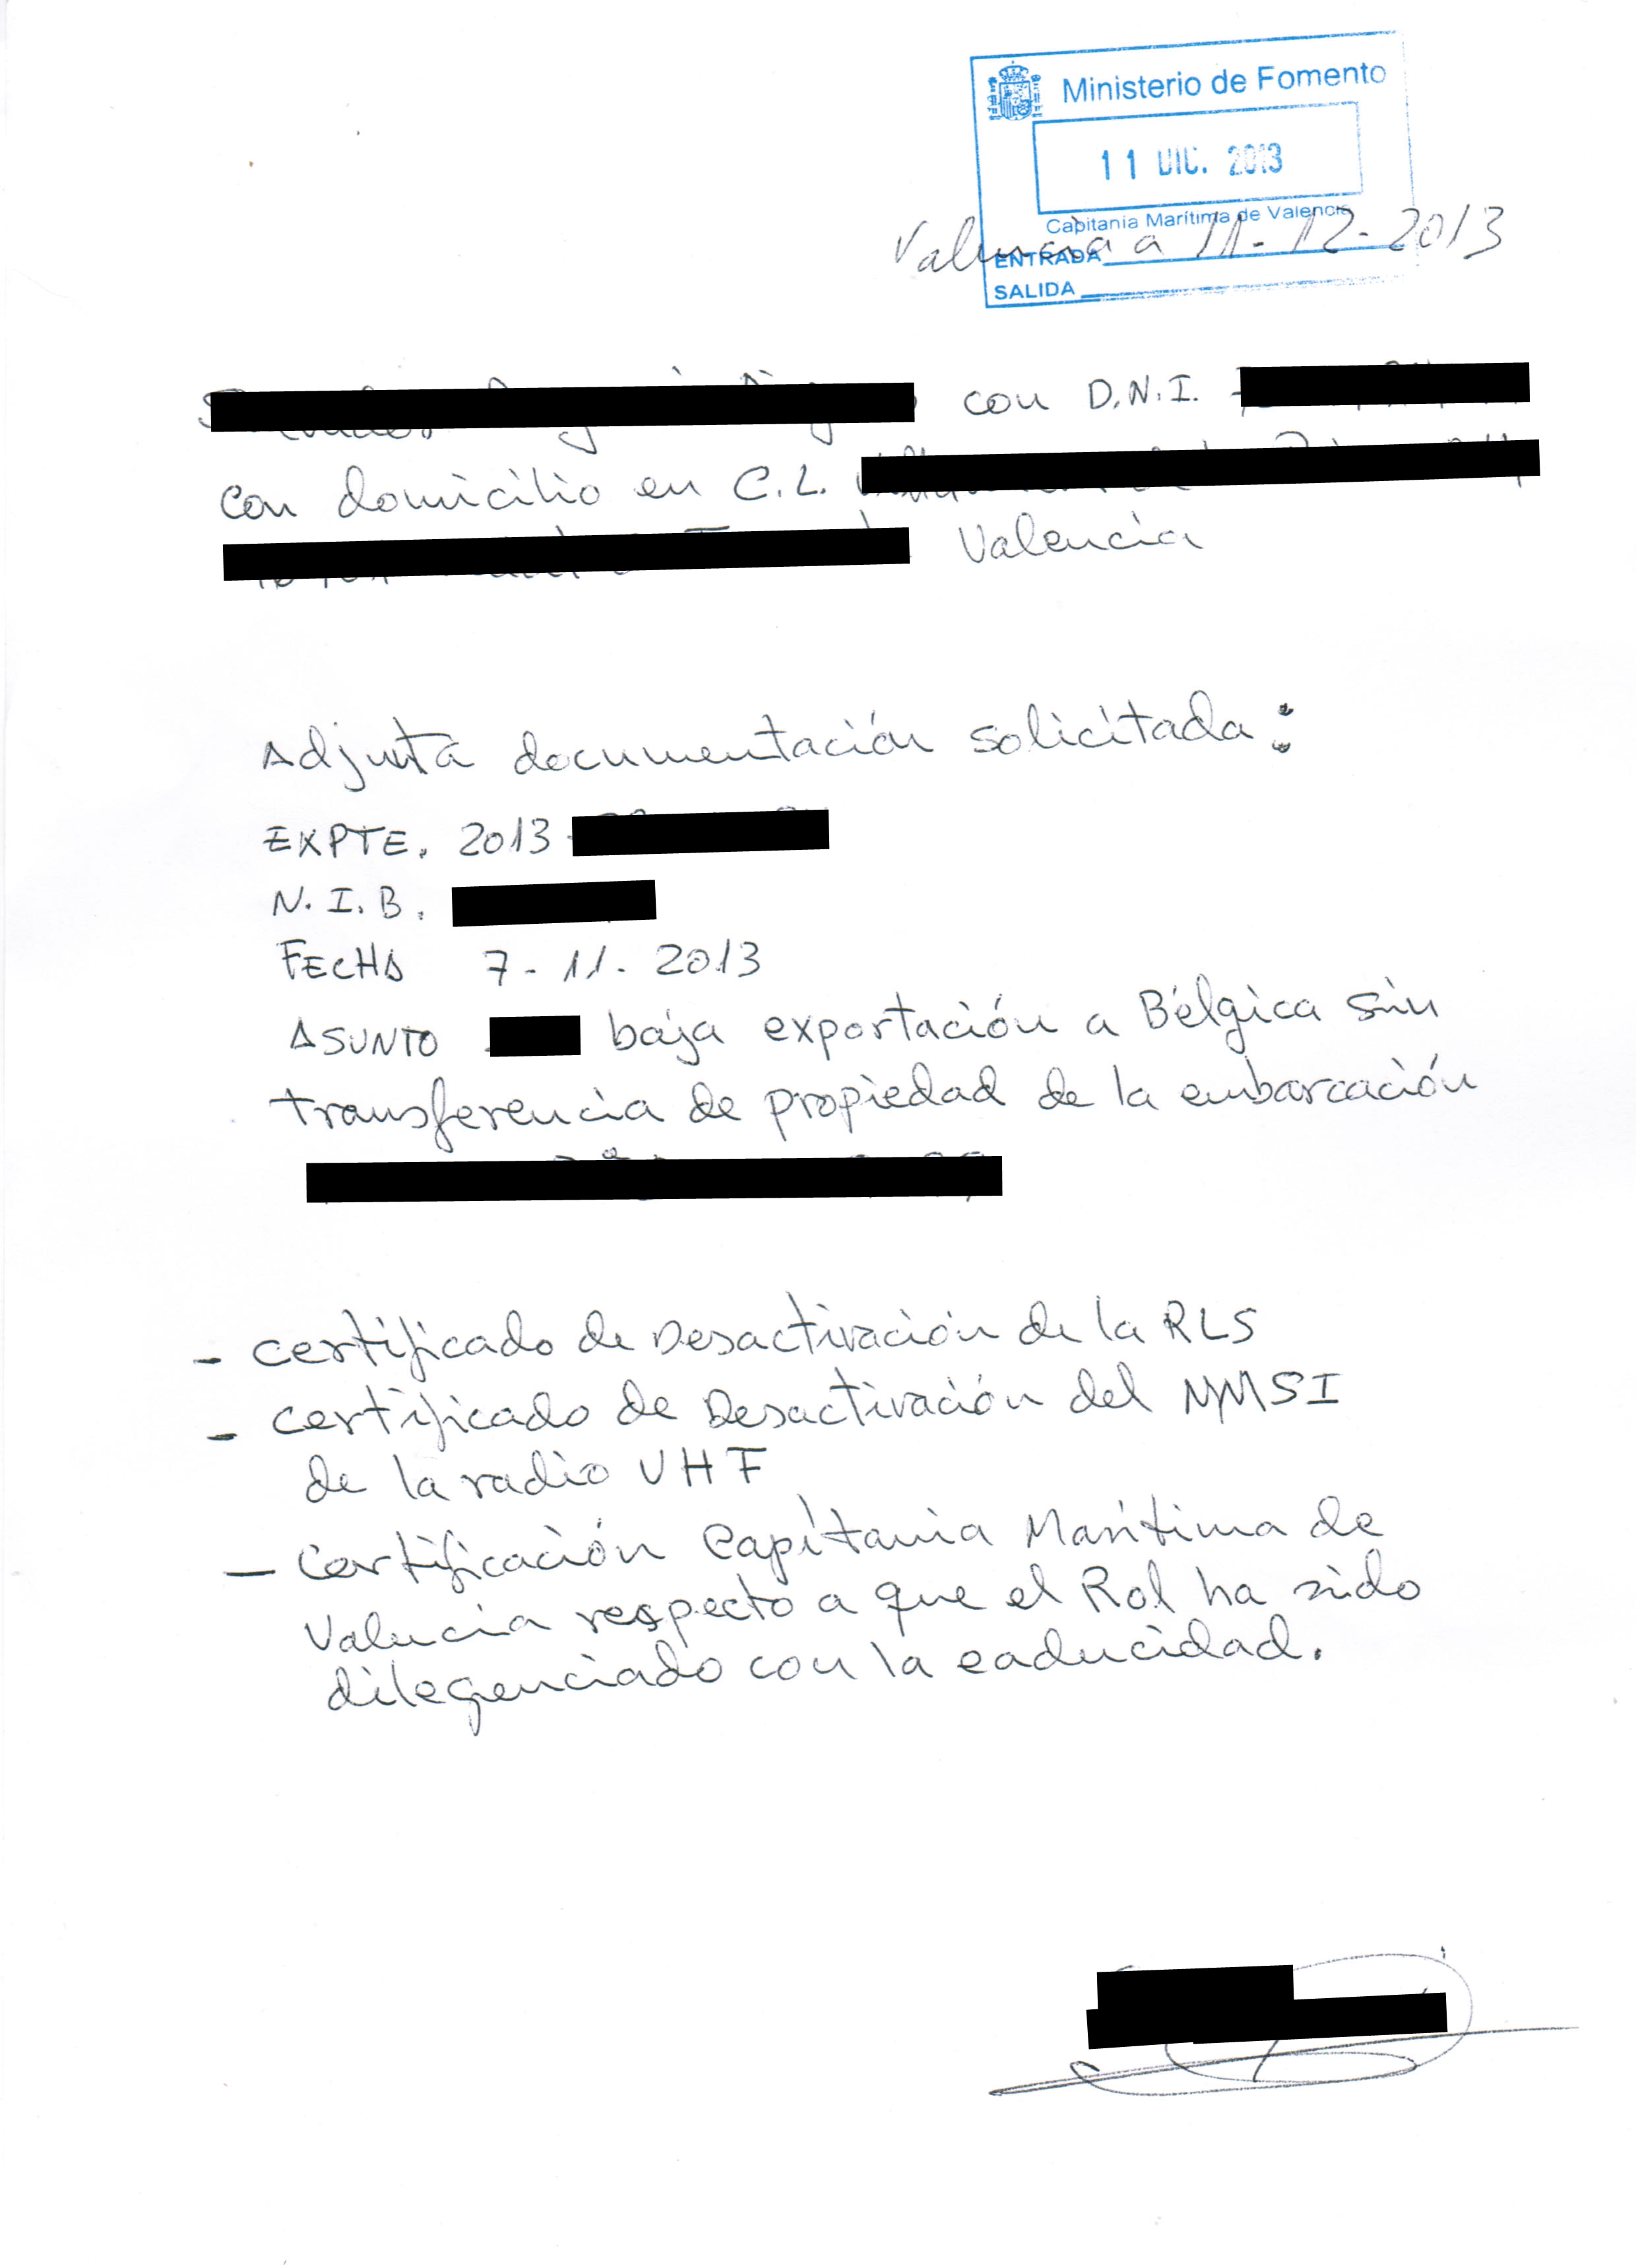 Ministerio de Fomento
11 DIC. 2013
Capitanía Marítima de Valencia
Valencia a 11-12-2013
ENTRADA
SALIDA
con D.N.I.
con domicilio en C.L.
Valencia
Adjunta documentación solicitada:
EXPTE. 2013
N.I.B.
FECHA 7-11-2013
ASUNTO baja exportación a Bélgica sin
transferencia de propiedad de la embarcación
- certificado de Desactivación de la RLS
- certificado de Desactivación del MMSI
de la radio VHF
- Certificación Capitania Marítima de
Valencia respecto a que el Rol ha sido
dilegenciado con la caducidad.